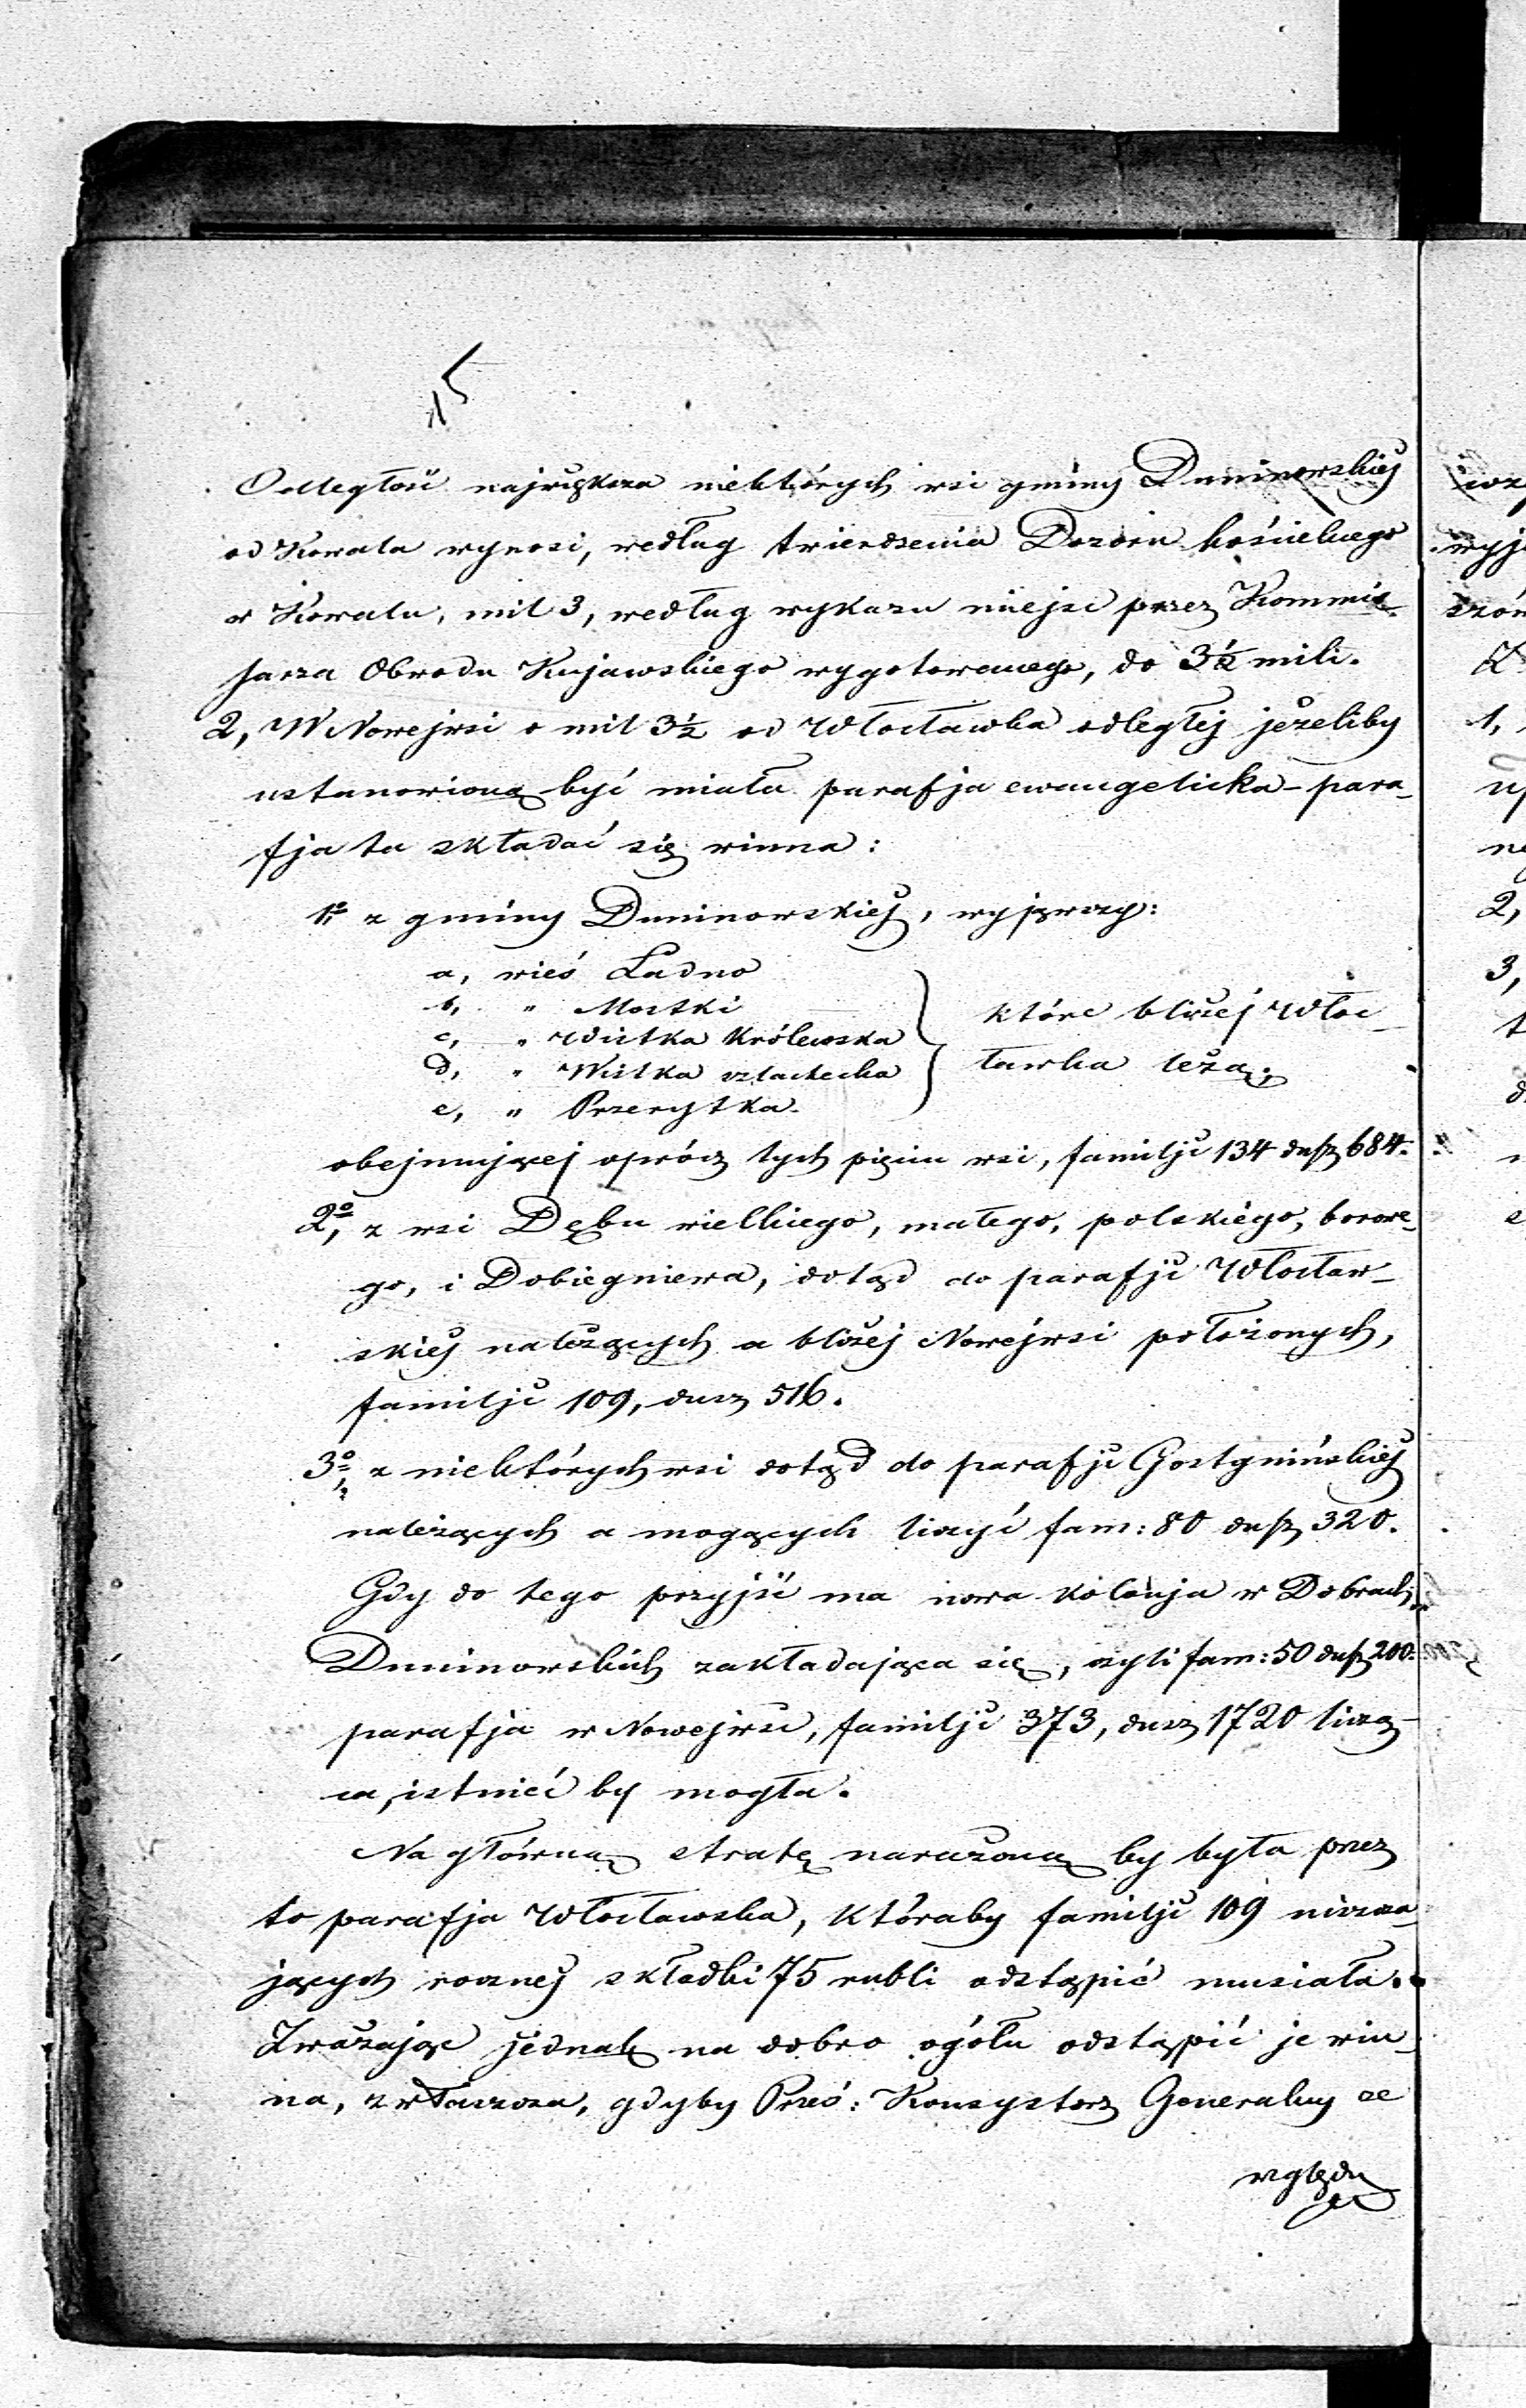 15
Odległość największa niektórych wsi gminy Duninowskiej
od Kowala wynosi, według twierdzenia Dozoru kościelnego
w Kowalu, mil 3, według wykazu miejsc przez Kommis-
sarza Obwodu Kujawskiego wygotowanego, do 3½ mili.
2, W Nowejwsi o mil 3½ od Włocławka odległej jeżeliby
ustanowioną być miała parafja ewangelicka - para-
fja ta składać się winna:
1º z gminy Duninowskiej, wyjąwszy:
a, wieś Ladno
b, " Mostki
c, " Wistka Królewska
d, " Wistka szlachecka
e, " Przerytka.
które bliżej Włoc-
ławka leżą;
obejmującej oprócz tych pięciu wsi, familji 134 dusz 684.
2º, z wsi Dębu wielkiego, małego, polskiego, borowe-
go, i Dobiegniewa, dotąd do parafji Włocław-
skiej należących a bliżej Nowejwsi położonych,
familji 109, dusz 516.
3º, z niektórych wsi dotąd do parafji Gostynińskiej
należących a mogących liczyć fam: 80 dusz 320.
Gdy do tego przyjść ma nowa kolonja w Dobrach
Duninowskich zakładająca się, czyli fam: 50 dusz 200.
parafja w Nowejwsi, familji 373, dusz 1720 licząc-
ca, istnieć by mogła.
Na główną stratę narażoną by była przez
to parafja Włocławska, któraby familji 109 niszcza-
jących rocznej składki 75 rubli odstąpić musiała.
Zważając jednak na dobro ogółu odstąpić je win-
na, zwłaszcza, gdyby Prześ: Konsystorz Generalny ze
względu